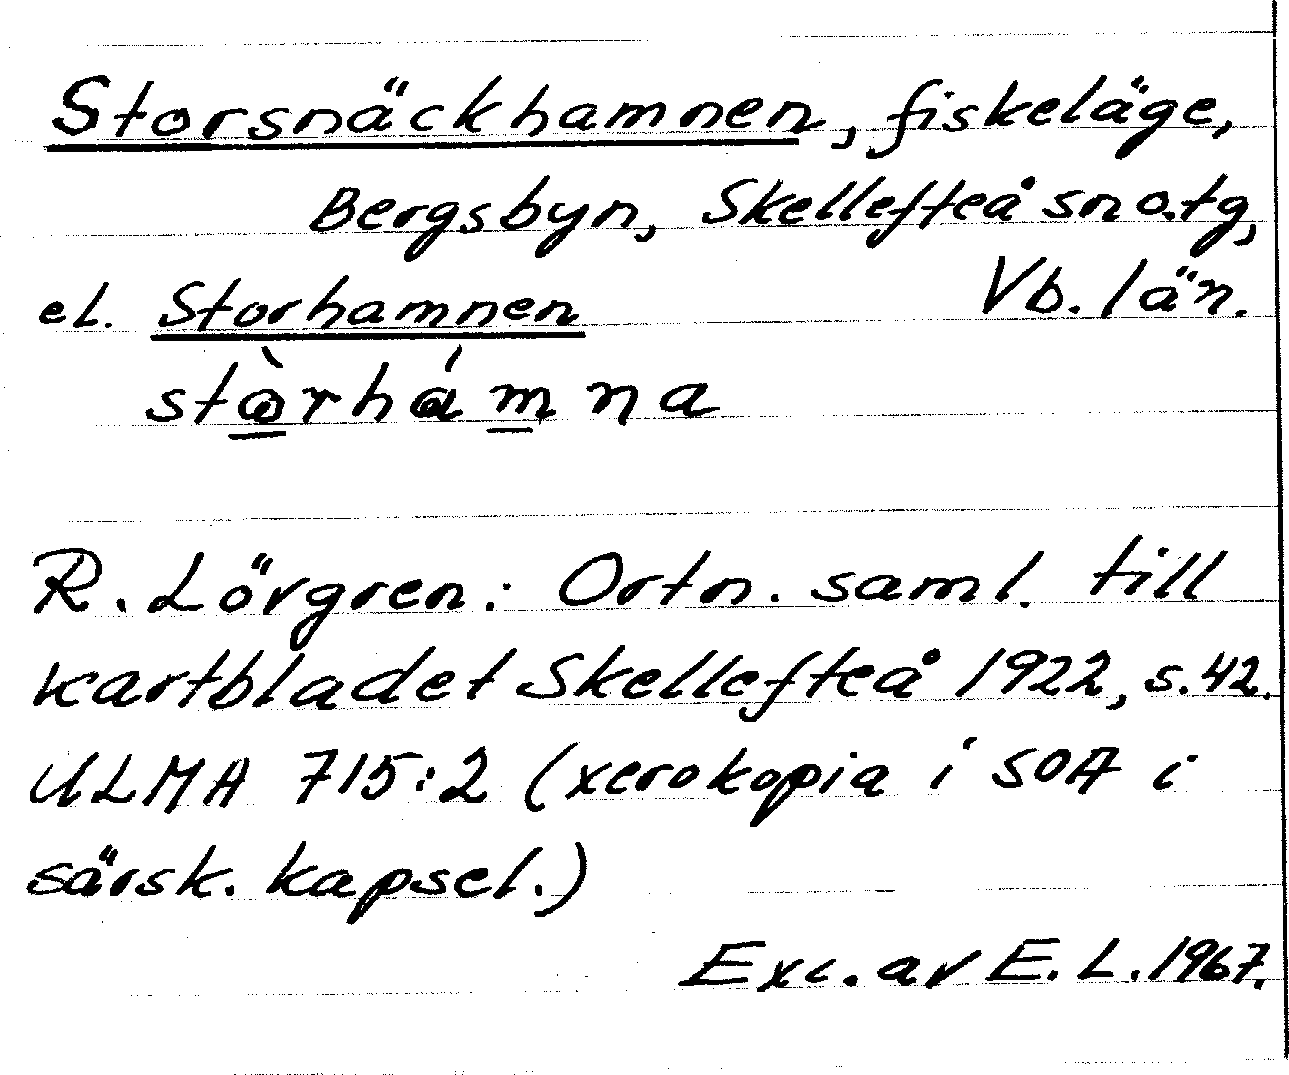 Storsnäckhamnen, fiskeläge,
Bergsbyn, Skellefteå sn o. tg,
Vb. län.
el. Storhamnen
stòrhámna
R. Lövgren: Ortn. saml. till
kartbladet Skellefteå 1922, s. 42.
ULMA 715:2 (xerokopia i SOA i
särsk. kapsel.)
Exc. av E. L. 1967.